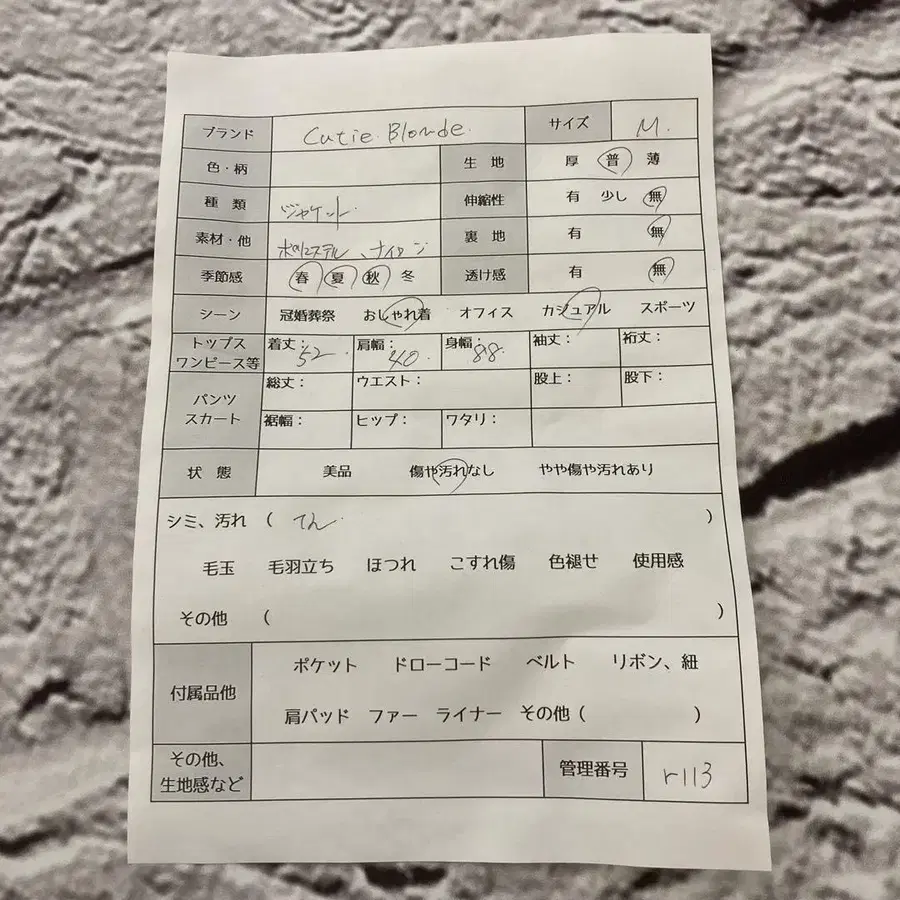 ブランド Cutie Blonde サイズ M.
色・柄 生地 厚 普 薄
種類 ジャケット 伸縮性 有 少し 無
素材・他 ポリエステル、ナイロン 裏地 有 無
季節感 春 夏 秋 冬 透け感 有 無
シーン 冠婚葬祭 おしゃれ着 オフィス カジュアル スポーツ
トップス
ワンピース等 着丈:52 肩幅:40 身幅:88 袖丈: 裄丈:
パンツ
スカート 総丈: ウエスト: 股上: 股下:
裾幅: ヒップ: ワタリ:
状態 美品 傷や汚れなし やや傷や汚れあり
シミ、汚れ ( )
毛玉 毛羽立ち ほつれ こすれ傷 色褪せ 使用感
その他 ( )
付属品他 ポケット ドローコード ベルト リボン、紐
肩パッド ファー ライナー その他 ( )
その他、
生地感など 管理番号 r113